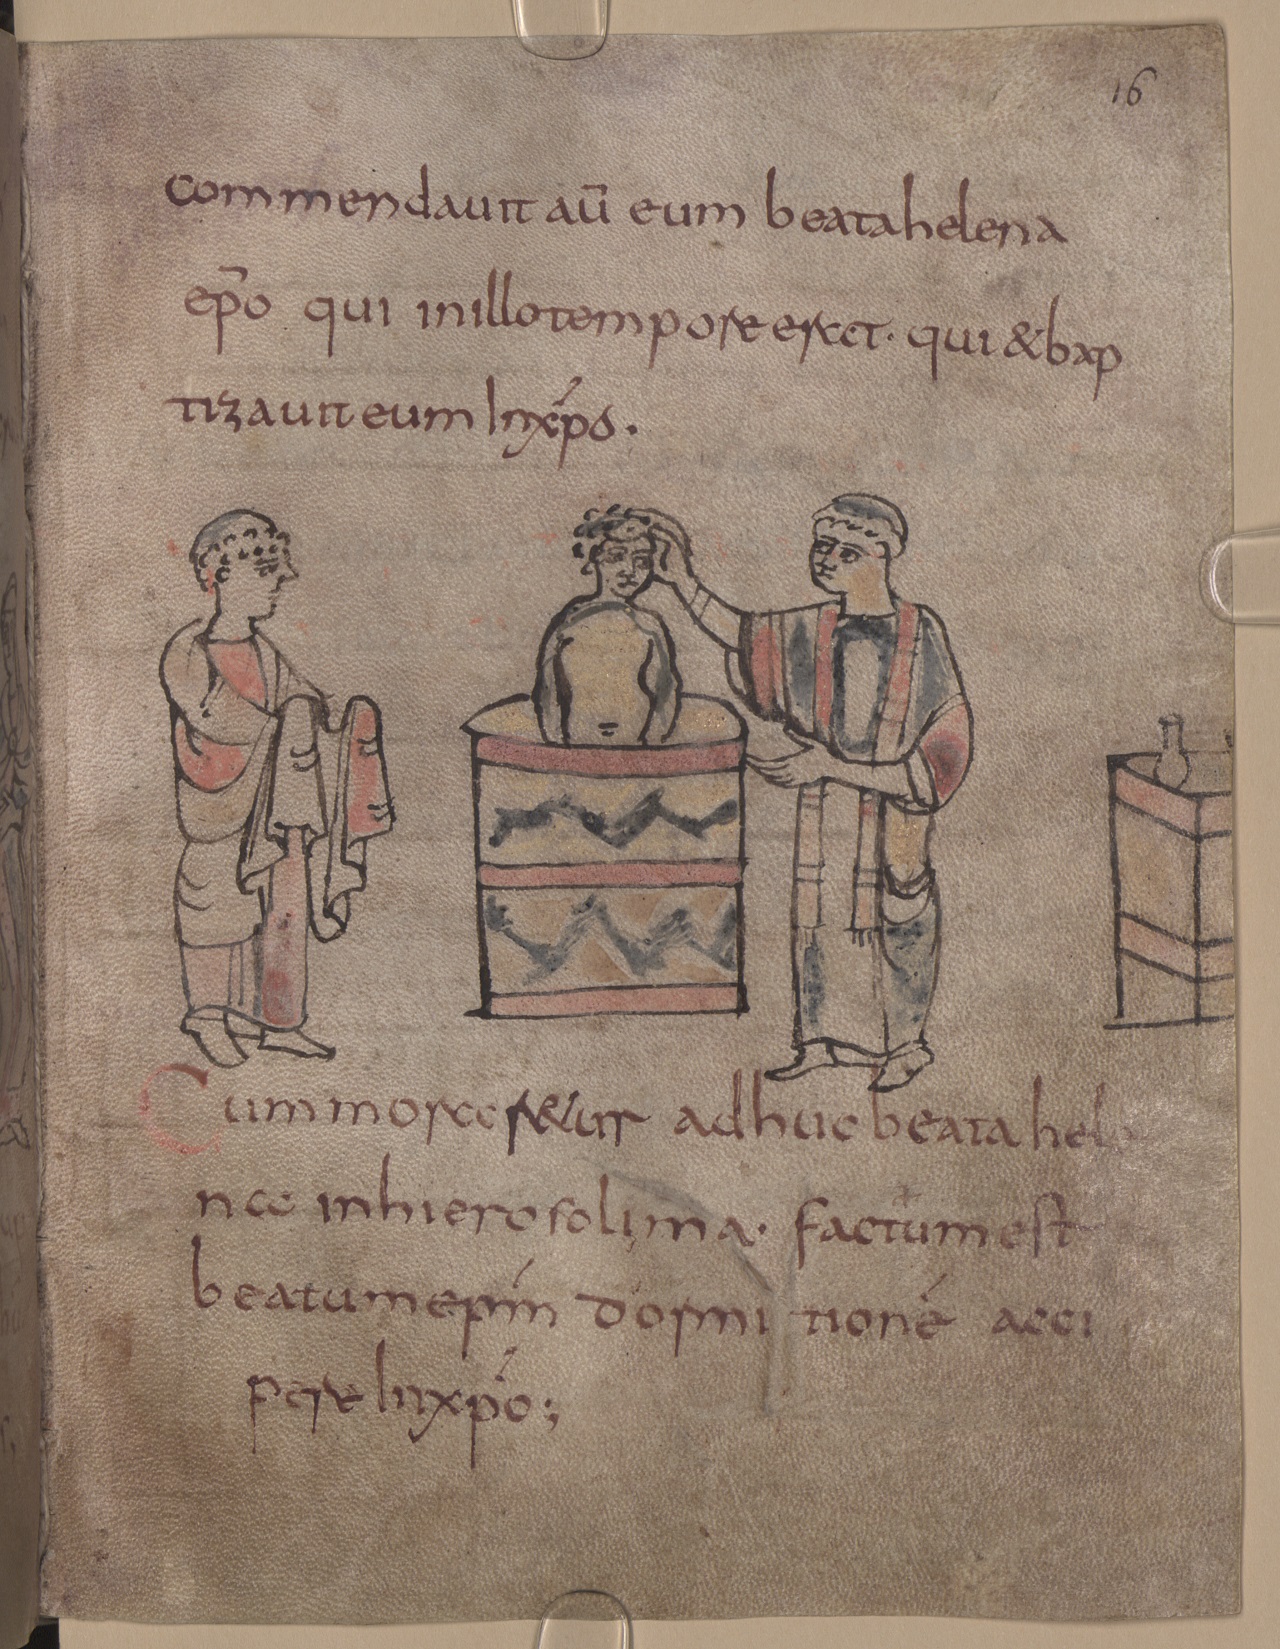 16
commendauit aū eum beata helena
ep̄o qui in illo tempore erat. qui & bap
tizauit eum in xp̄o.
Cum moraretur adhuc beata hele
nae in hierosolima. factum est
beatum ep̄m dormitionē acci
pere in xp̄o;